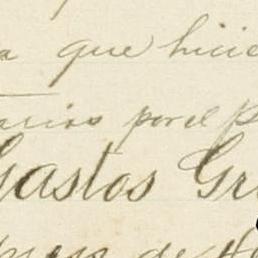 a que hicie
arios por el P
Gastos Gr
de